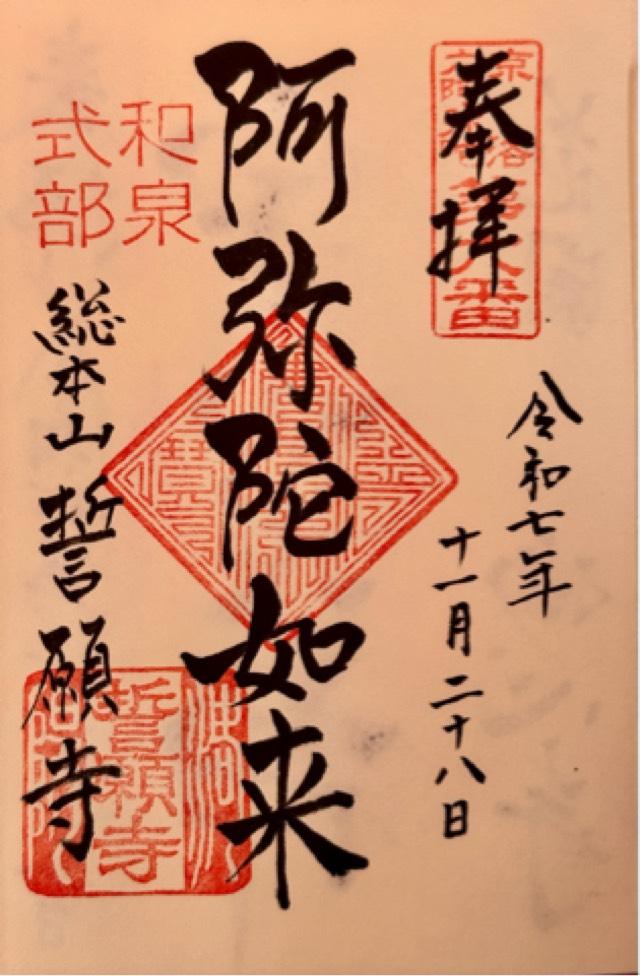 奉拝
令和七年
十一月二十八日
阿弥陀如来
和泉
式部
総本山誓願寺
誓願寺